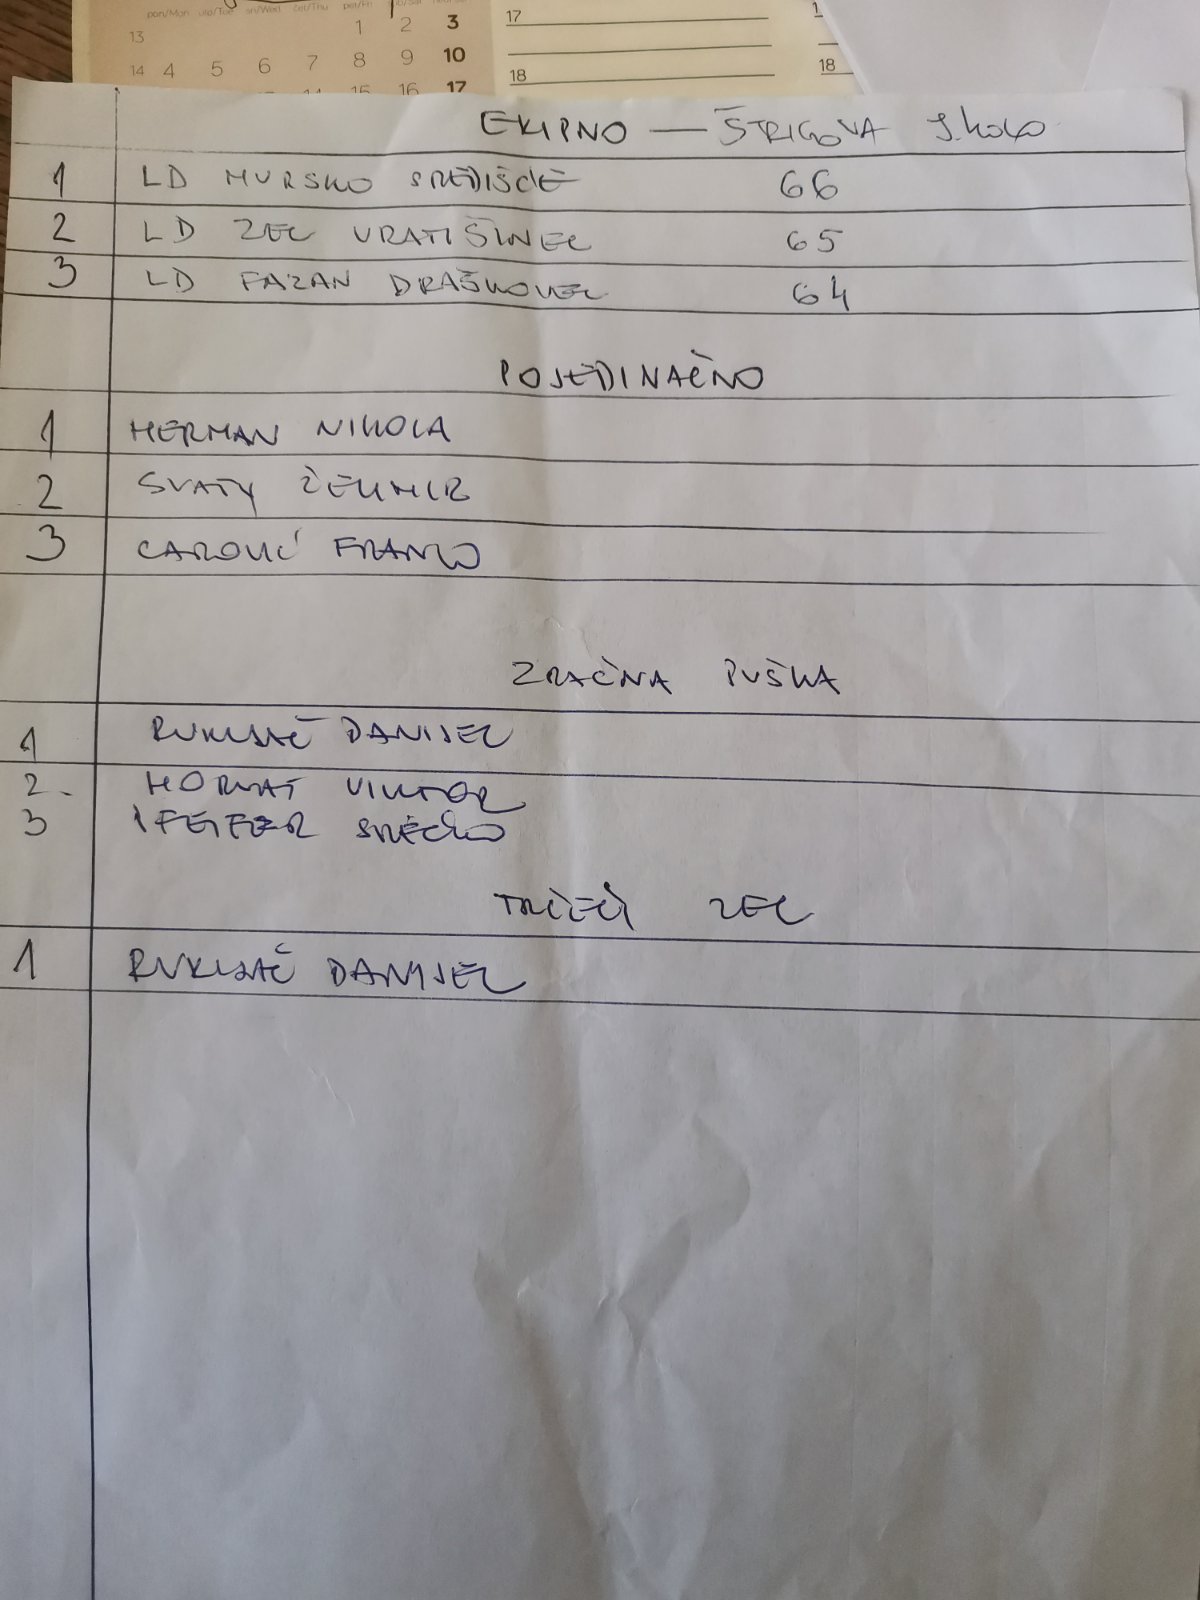 pon/Mon uto/Tue sri/Wed čet/Thu pet/Fri
13 1 2 3
14 4 5 6 7 8 9 10
14 15 16 17
17
18
18
EKIPNO — ŠTRIGOVA I. KOLO
1 LD MURSKO SREDIŠĆE 66
2 LD ZEC VRATIŠINEC 65
3 LD FAZAN DRAŠKOVEC 64
POJEDINAČNO
1 HERMAN NIKOLA
2 SVATY ŽELIMIR
3 CAROVIĆ FRANKO
ZRAČNA PUŠKA
1 RUKLJAČ DANIJEL
2. HORVAT VIKTOR
3 PFEIFER SREĆKO
TRČEĆI ZEC
1 RUKLJAČ DANIJEL